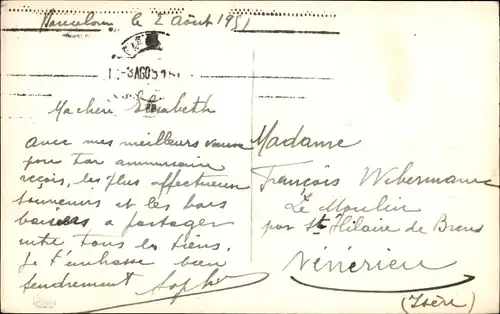 le 2 Août 1951
3 AGO 51
Ma chérie Elisabeth
avec mes meilleurs vœux
pour ton anniversaire
reçois, les plus affectueux
souvenirs et les bons
baisers a partager
entre tous les tiens.
Je t'embrasse bien
tendrement
Madame
François Webermann
Le Moulin
par St Hilaire de Brens
Vénérieu
(Isère)